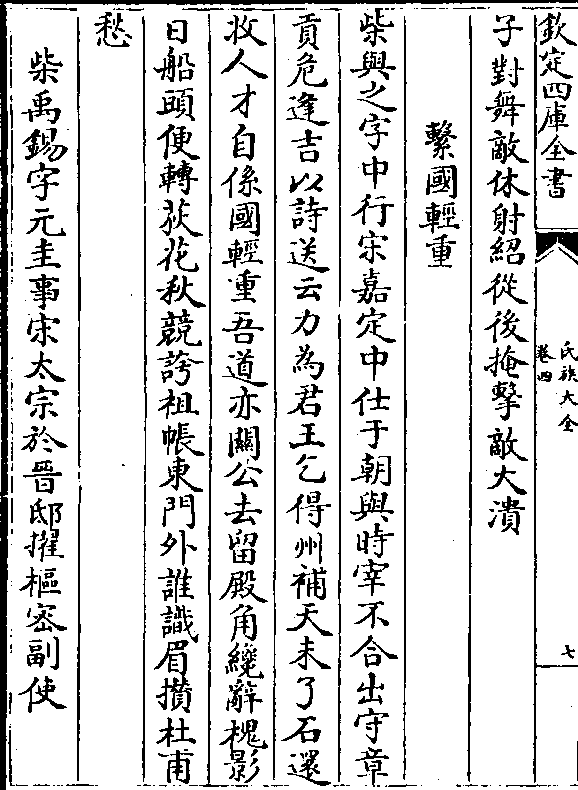 欽定四庫全書
氏族大全
卷四
七
子對舞敵休射紹從後掩擊敵大潰
繫國輕重
柴與之字中行宋嘉定中仕于朝與時宰不合出守章
貢危逢吉以詩送云力為君王乞得州補天未了石還
收人才自係國輕重吾道亦關公去留殿角纔辭槐影
日船頭便轉荻花秋競誇祖帳東門外誰識眉攢杜甫
愁
柴禹錫字元圭事宋太宗於晉邸擢樞密副使